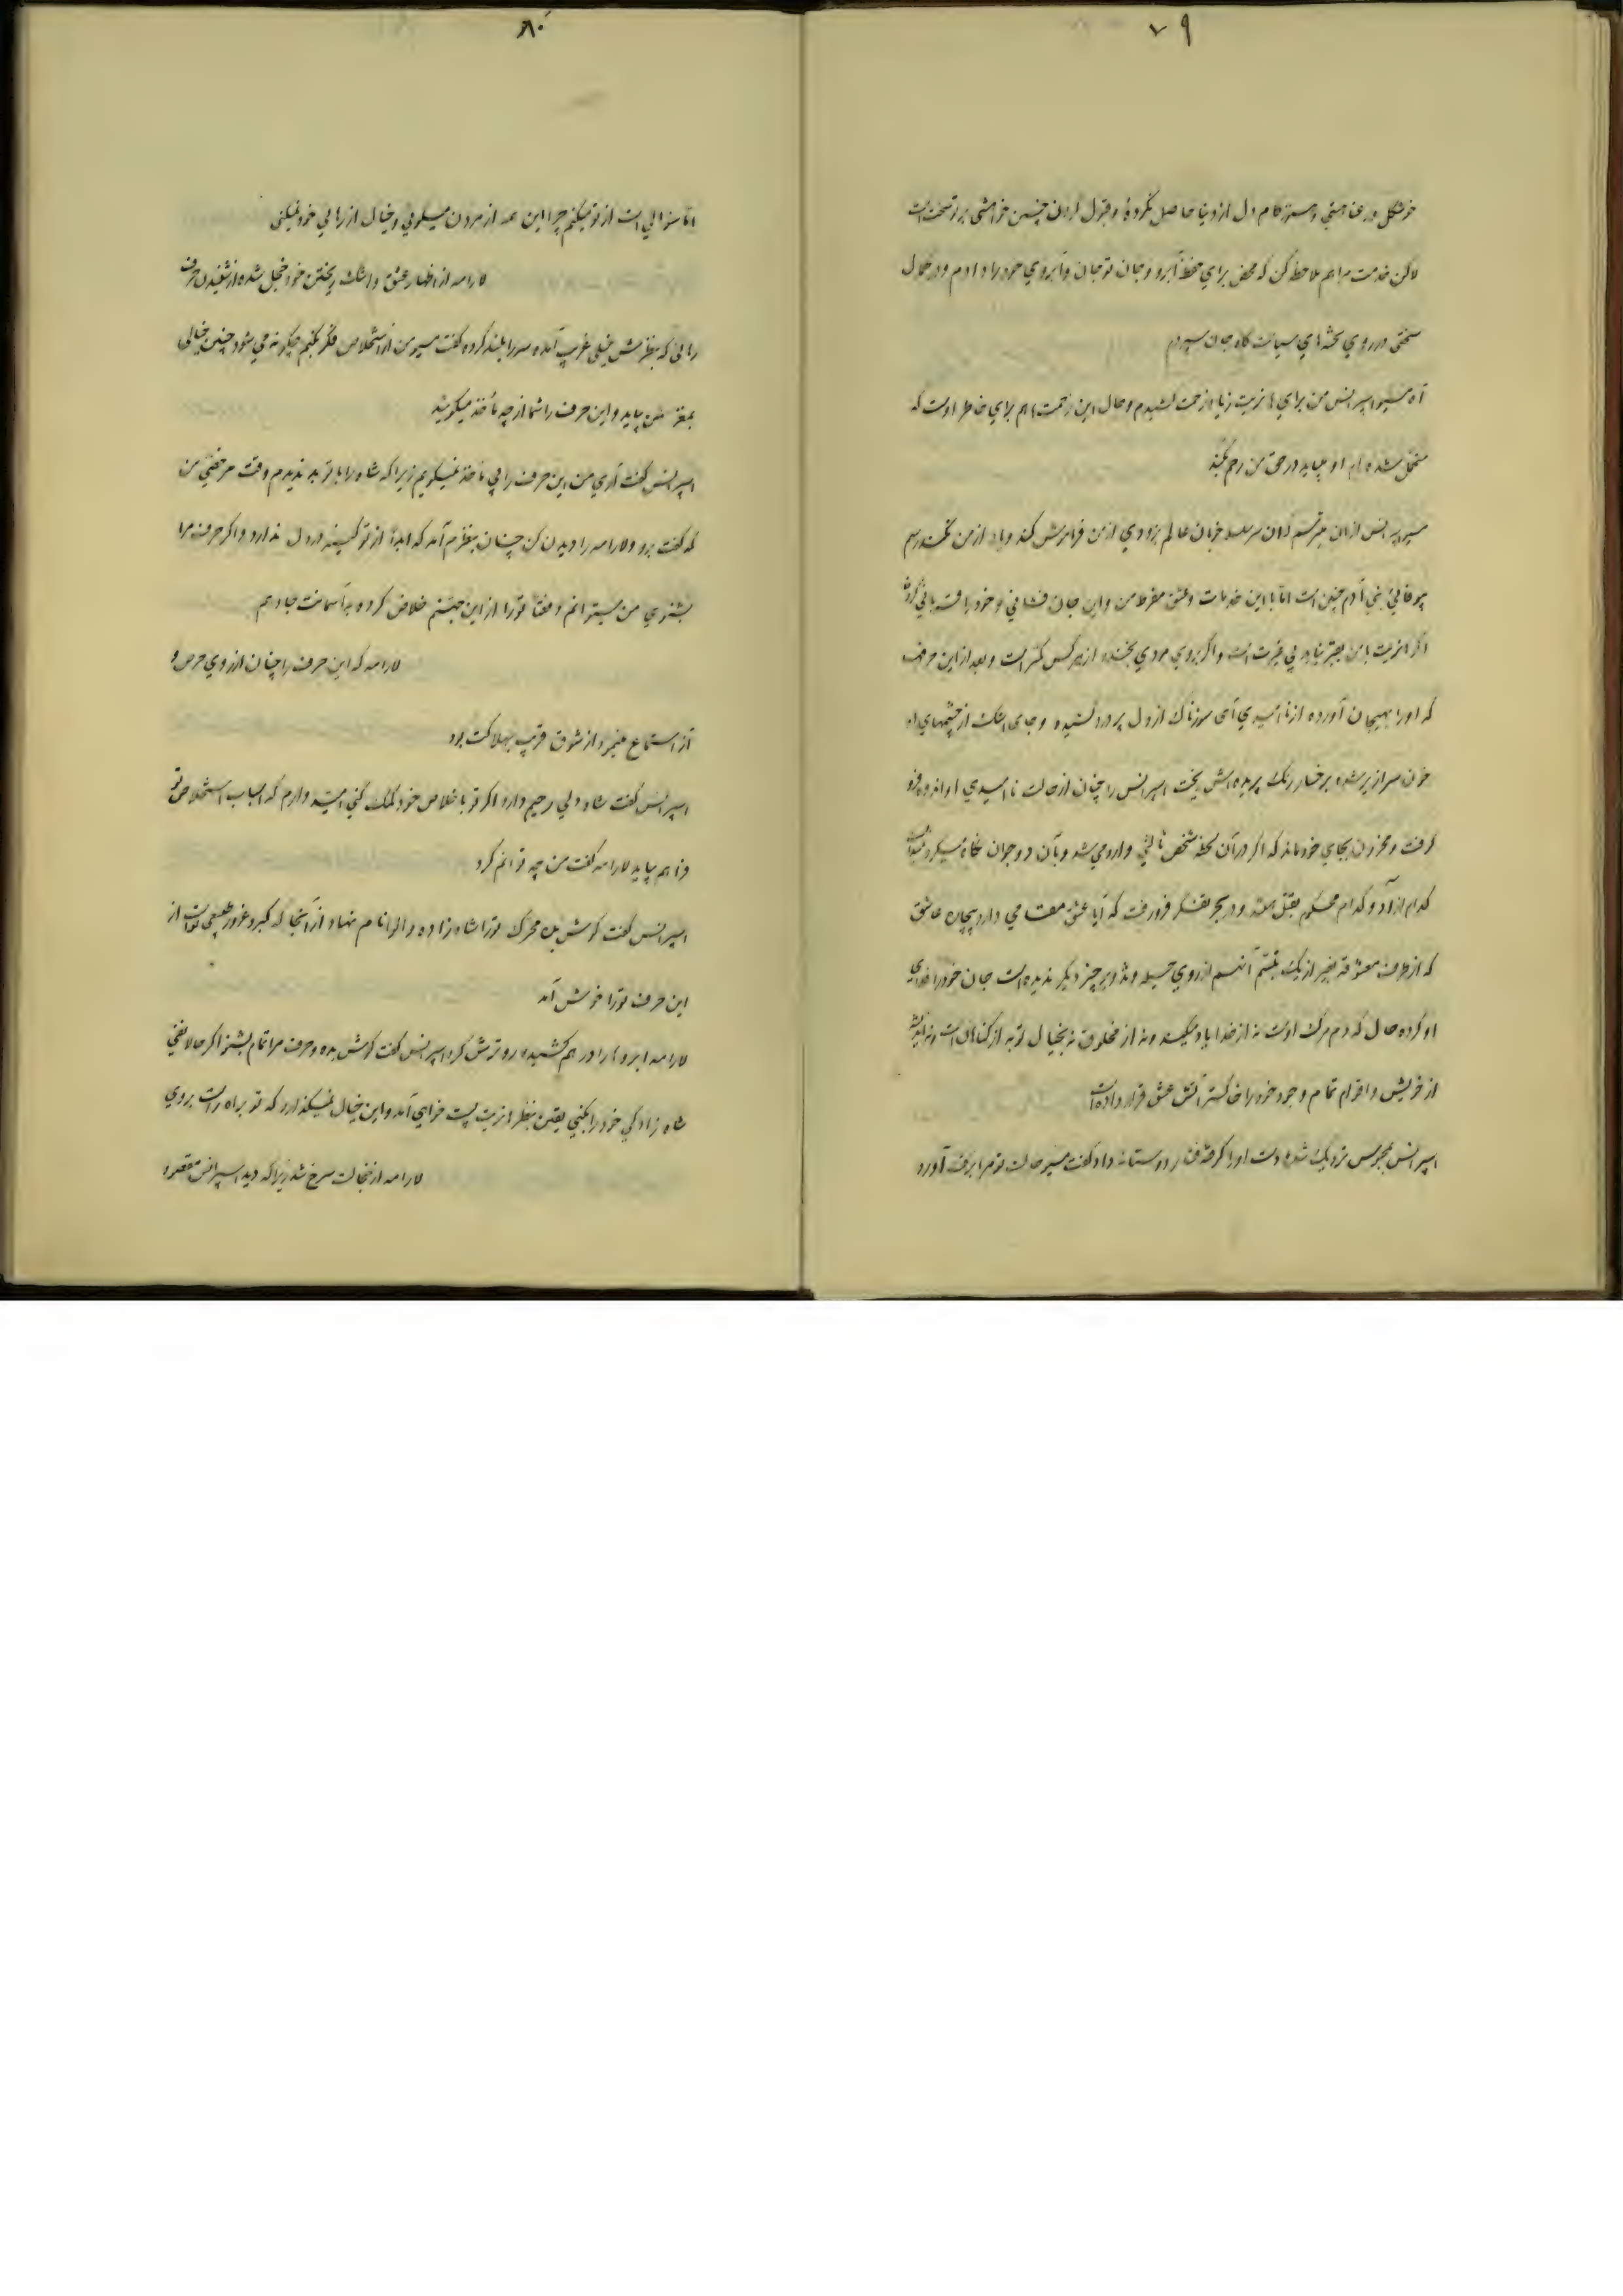 ۷۹
خوشکل و رعنا هستی و هنوز کام دل از دنیا حاصل نکردهٔ و قبول کردن چنین خواهشی بر تو سخت است
لاکن خدمت مرا هم ملاحظه کن که محض برای حفظ آبرو و جان تو جان و آبروی خود را دادم و در کمال
سختی در روی تخته‌های سیاست کاه جان سپردم
آه مسیو اسپرانس من برای هانریت زیاد زحمت کشیدم و حال این زحمت هم برای خاطر اوست که
متحمل شده‌ام او بیاید در حق من رحم بکند
مسیو اسپرانس ازان میترسم که آن سر سلسله خوبان عالم بزودی از من فراموش کند و یاد از من نکند رسم
بیوفائی بنی آدم چنین است امّا با این خدمات و عشق مفرط من و این جان فشانی و خود را قربانی کردن
اگر هانریت با من بهتر نباید بی غیرت است و اگر بروی مردی بخندد از هر کس کمتر است و بعد از این حرف
که او را بهیجان آورده از ناامیدی آهی سوزناک از دل پر درد کشیده و جای اشک از چشمهای او
خون سرازیر شده بر رخسار رنک پریده‌اش ریخت اسپرانس را چنان از حالت ناامیدی او اندوه فرو
گرفت و محزون بجای خود ماند که اگر در آن لحظه شخص ثالثی وارد می‌شد و بآن دو جوان نگاه میکرد نمیدانست
کدام آزاد و کدام محکوم بقتل هستند و در بحر تفکر فرو رفت که آیا عشق چه مقامی دارد بیچاره عاشق
که از طرف معشوقه بغیر از یک تبسّم آنهم از روی حیله و تزویر چیز دیگر ندیده است جان خود را فدای
او کرده حال که دم مرک اوست نه از خدا یاد میکند و نه از مخلوق نه بخیال توبه از کناهان است و نه اندیشه
از خویش و اقوام تمام وجود خود را خاکستر آتش عشق قرار داده است
اسپرانس بمحبوس نزدیک شده دست او را کرفته فشار دوستانه داد گفت مسیو حالت تو مرا برقت آورد
۸۰
امّا سؤالی است از تو میکنم چرا این همه از مردن میکوئی و خیال از رهائی خود نمیکنی
لارامه از اظهار عشق و اشک ریختن خود خجل شده از شنیدن حرف
رهائی که بنظرش خیلی غریب آمده سر را بلند کرده گفت مسیو من از استخلاص فکر بکنم چکونه می شود چنین خیالی
بمغز من بیاید و این حرف را شما از چه مأخذ میکوئید
اسپرانس گفت آری من این حرف را بی مأخذ نمیکویم زیرا که شاه را با تو بد ندیدم وقت مرخصی من
که گفت برو و لارامه را دیدن کن چنان بنظرم آمد که ابداً از تو کینه در دل ندارد و اگر حرف مرا
بشنوی من میتوانم دفعتاً تو را از این جهنّم خلاص کرده بر آسمانت جا دهم
لارامه که این حرف را چنان از روی حرص و
آز استماع مینمود از شوق قریب بهلاکت بود
اسپرانس گفت شاه دلی رحیم دارد اگر تو باخلاص خود کمک کنی امید دارم که اسباب استخلاص تو
فراهم بیاید لارامه گفت من چه توانم کرد
اسپرانس گفت کوش بده محرک تو را شاه زاده والوا نام نهاد از آنجا که کبر و غرور طبیعی تو است از
این حرف تو را خوش آمد
لارامه ابروها را در هم کشیده رو ترش کرد اسپرانس گفت کوش بده و حرف مرا تمام بشنو اگر حالا نفی
شاه زادکی خود را بکنی یقین بنظر هانریت پست خواهی آمد و این خیال نمیکذارد که تو براه راست بروی
لارامه از خجالت سرخ شد زیرا که دید اسپرانس مقصود